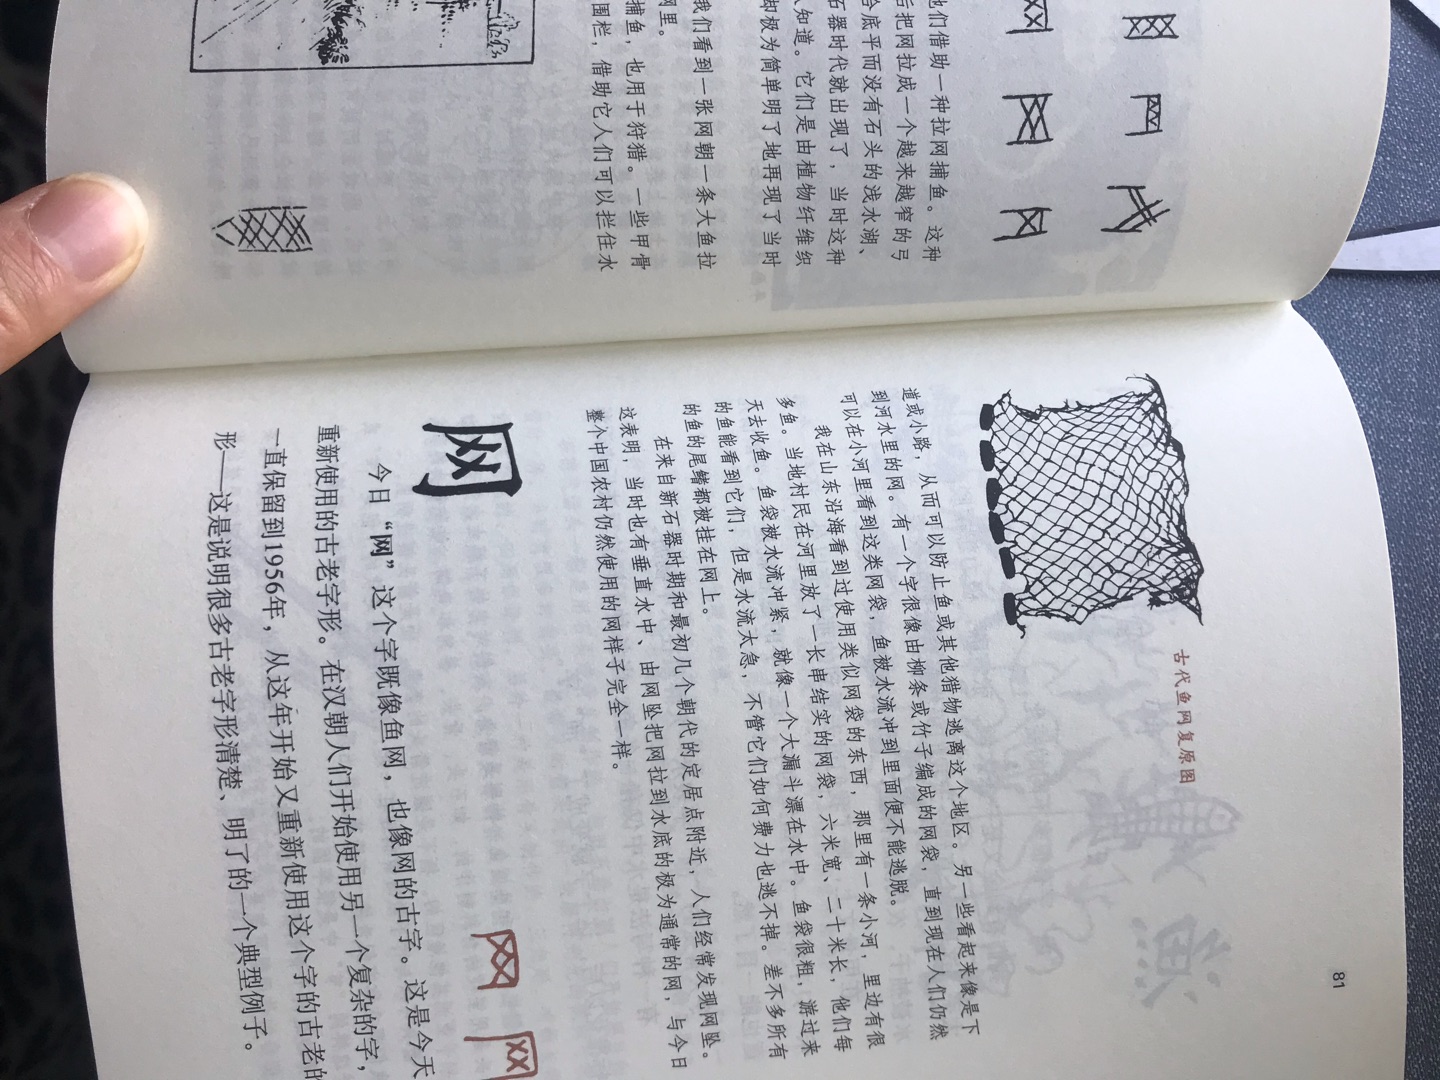 他们借助一种拉网捕鱼。这种
后把网拉成一个越来越窄的弓
合底平而没有石头的浅水湖、
石器时代就出现了，当时这种
人知道。它们是由植物纤维织
却极为简单明了地再现了当时
我们看到一张网朝一条大鱼拉
网里。
捕鱼，也用于狩猎。一些甲骨
围栏，借助它人们可以拦住水
81
古代鱼网复原图
道或小路，从而可以防止鱼或其他猎物逃离这个地区。另一些看起来像是下
到河水里的网。有一个字很像由柳条或竹子编成的网袋，直到现在人们仍然
可以在小河里看到这类网袋，鱼被水流冲到里面便不能逃脱。
我在山东沿海看到过使用类似网袋的东西，那里有一条小河，里边有很
多鱼。当地村民在河里放了一长串结实的网袋，六米宽、二十米长，他们每
天去收鱼。鱼袋被水流冲紧，就像一个大漏斗漂在水中。鱼袋很粗，游过来
的鱼能看到它们，但是水流太急，不管它们如何费力也逃不掉。差不多所有
的鱼的尾鳍都被挂在网上。
在来自新石器时期和最初几个朝代的定居点附近，人们经常发现网坠。
这表明，当时也有垂直水中、由网坠把网拉到水底的极为通常的网，与今日
整个中国农村仍然使用的网样子完全一样。
网
今日“网”这个字既像鱼网，也像网的古字。这是今天
重新使用的古老字形。在汉朝人们开始使用另一个复杂的字，
一直保留到1956年，从这年开始又重新使用这个字的古老的
形——这是说明很多古老字形清楚、明了的一个典型例子。